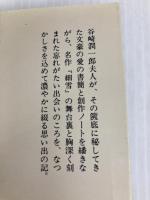 谷崎潤一郎夫人が、その篋底に秘してき
た文豪の愛の書簡と創作ノートを繙きな
がら、名作『細雪』の舞台裏と胸深く刻
まれた忘れがたい出会いのころを、なつ
かしさを込めて濃やかに綴る思い出の記。